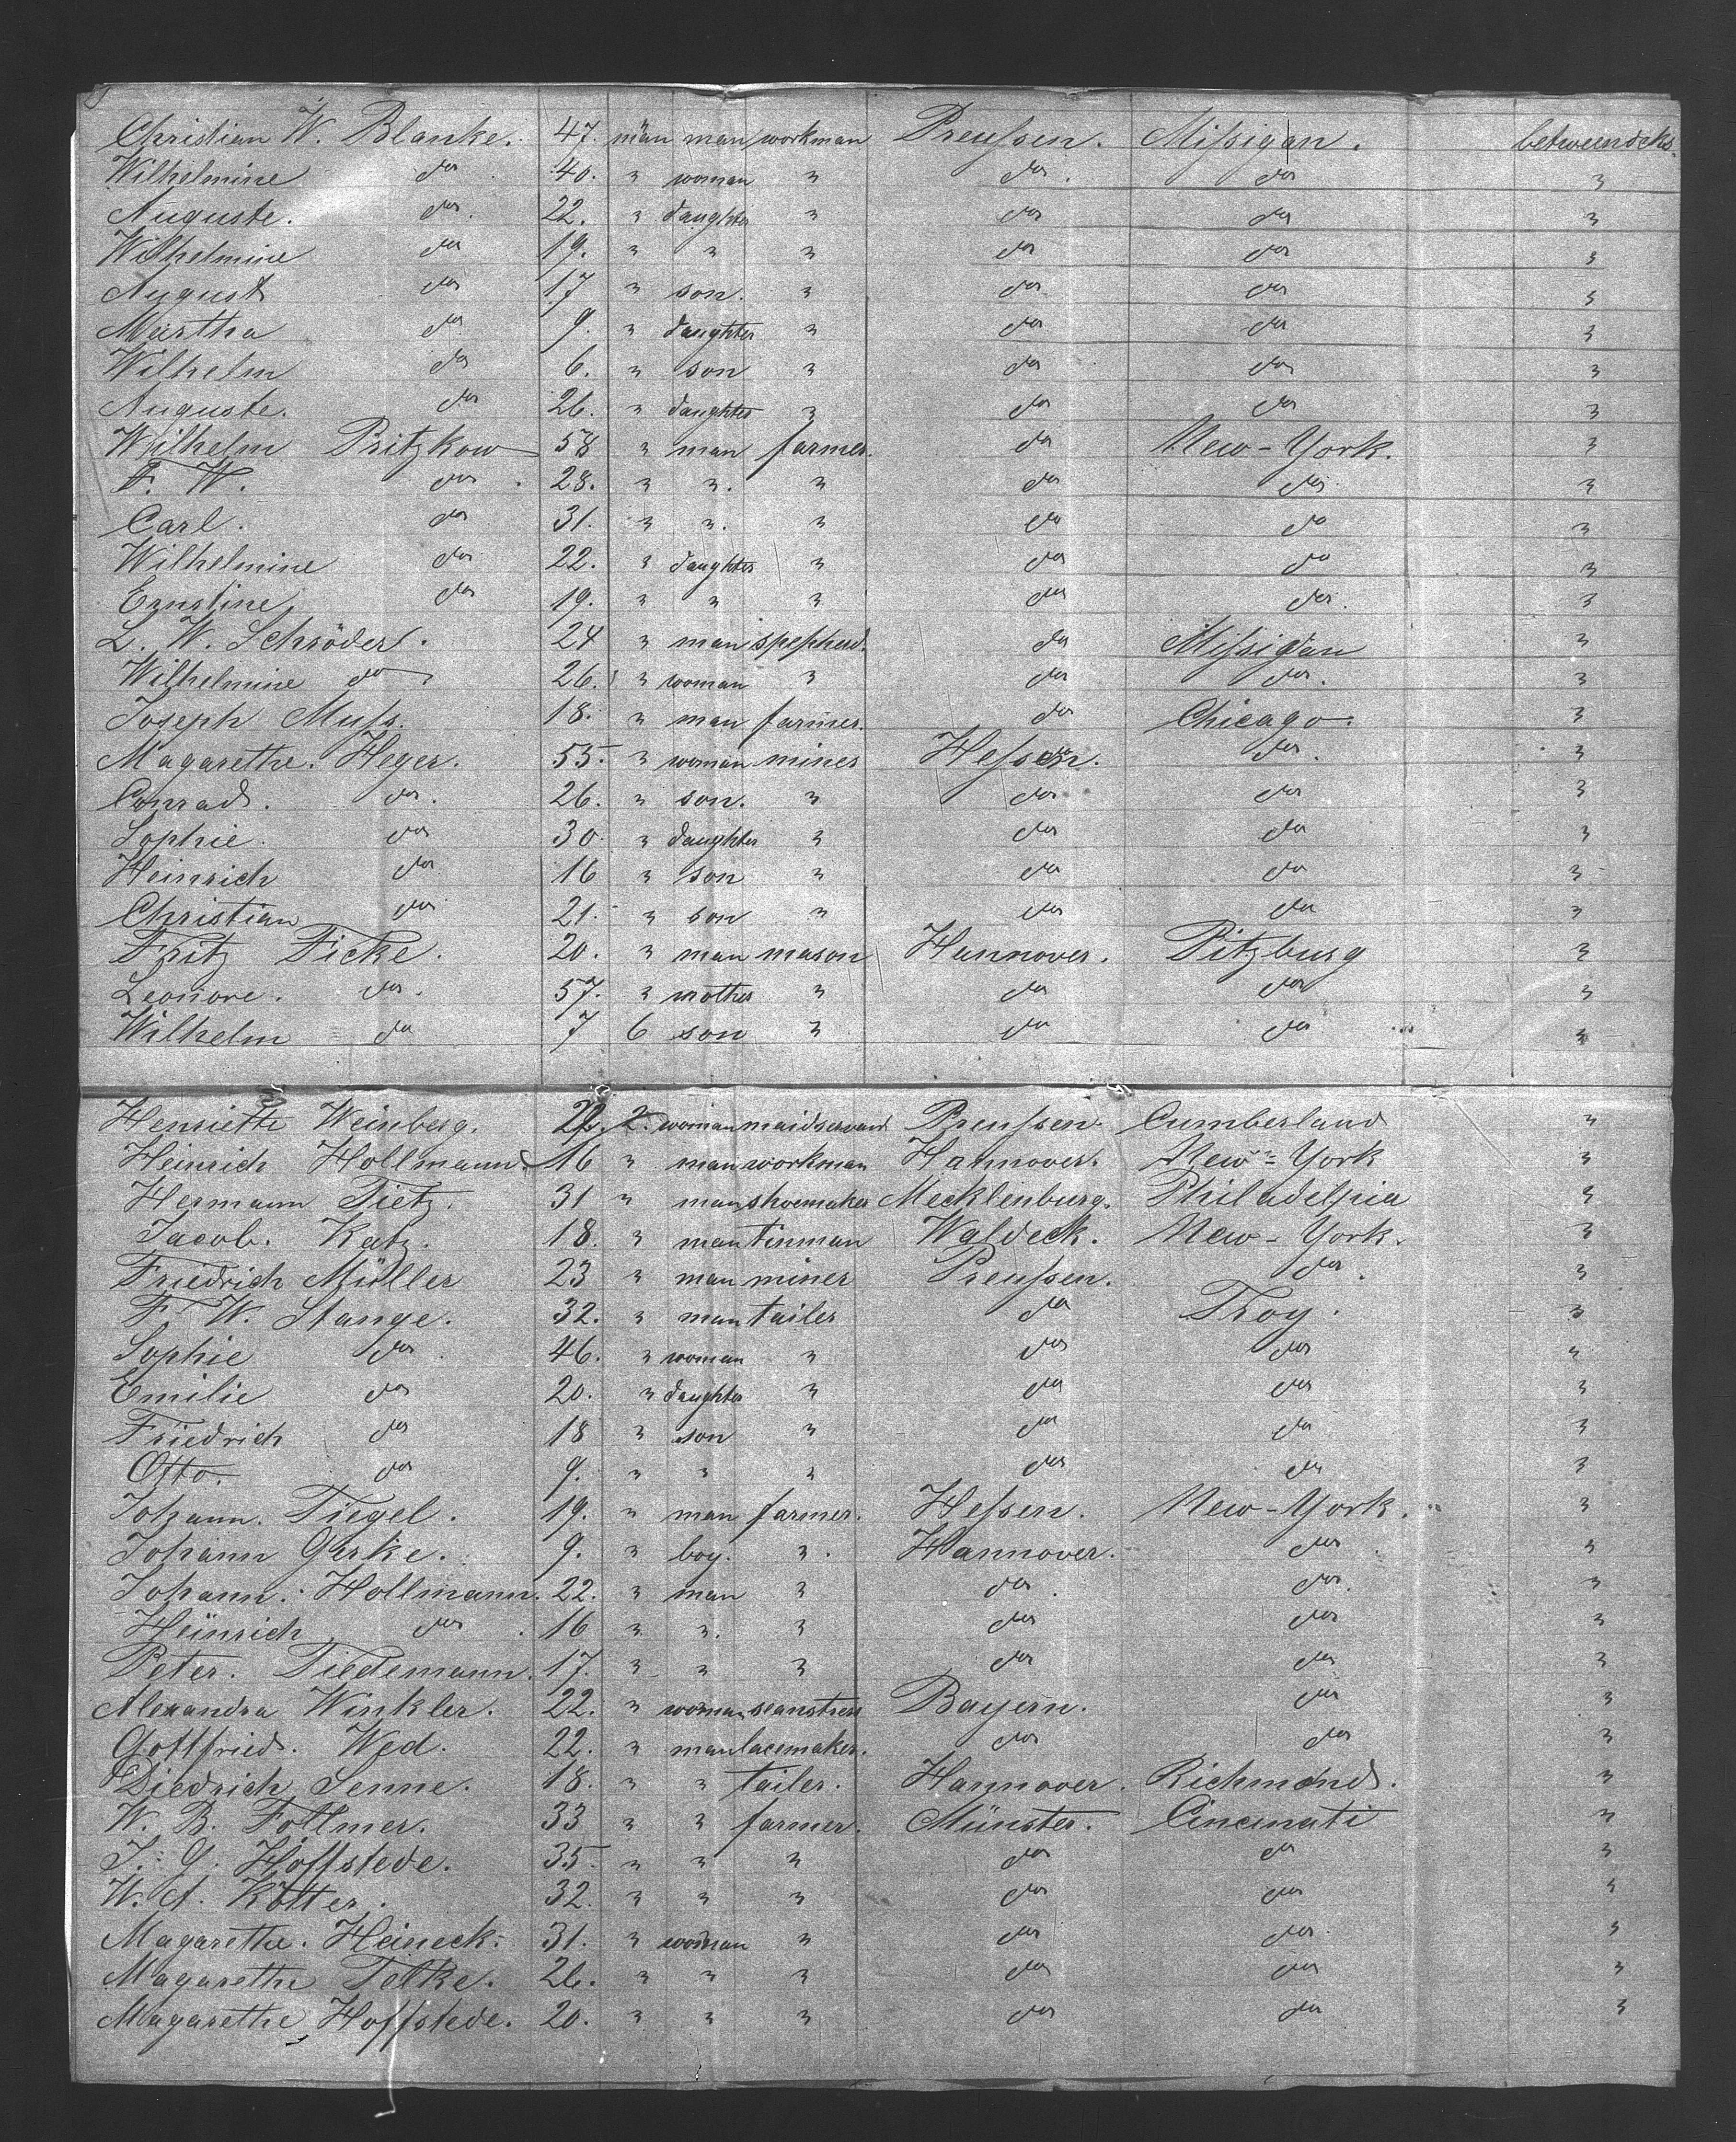 Christian W. Blanke. 47. män man workman Preußen. Mißigan. betweendeks.
Wilhelmine do 40. " woman " do. do "
Auguste. do. 22. " daughter " do do "
Wilhelmine do 19. " " " do do "
August do 17 " son. " do do "
Martha do 9. " daughter " do do "
Wilhelm do 6. " son " do do "
Auguste. do 26. " daughter " do do "
Wilhelm Pritzkow 58 " man farmer. do New-York. "
F. W. do. 28. " ". " do do. "
Carl. do 31. " ". " do do "
Wilhelmine do 22. " daughter " do do "
Ernstine do 19. " " " do do. "
L. W. Schröder. 24 " man shepherd. do Mißigan "
Wilhelmine do 26. " woman " do do. "
Joseph Muß. 18. " man farmer. do Chicago. "
Magarethe. Heger. 55. " woman mines Heßen. do. "
Conrad. do. 26. " son. " do do "
Sophie. do 30. " daughter " do do "
Heinrich do 16 " son " do do "
Christian do 21. " son " do do "
Fritz Ficke. 20. " man mason Hannover. Pitzburg "
Leonore. do. 57. " mother " do do "
Wilhelm do 7 6 son " do do "
Henriette Weinberg. 22. 2. woman maidservand Preußen. Cumberland "
Heinrich Hollmann. 16 " man workman Hannover. New-York "
Hermann Tietz. 31 " man shoemaker Mecklenburg. Philadelpia "
Jacob. Katz. 18. " man tinman Waldeck. New-York. "
Friedrich Müller 23 " man miner Preußen. do. "
F. W. Stange. 32. " man tailer do Troy. "
Sophie do 46. " woman " do do "
Emilie do 20. " daughter " do do "
Friedrich do 18 " son " do do "
Otto. do 9. " " " do do "
Johann. Tiegel. 19. " man farmer. Heßen. New-York. "
Johann Gerke. 9. " boy. ". Hannover. do "
Johann. Hollmann. 22. " man " do. do. "
Heinrich do 16 " ". " do do "
Peter. Tiedemann. 17. " " " do do "
Alexandra Winkler. 22. " woman seanstress Bayern. do "
Gottfried. Wed. 22. " man lacemaker. do do "
Diedrich Senne. 18. " " tailer. Hannover. Richmond. "
W. B. Follmer. 33 " " farmer. Münster. Cincinati "
J. G. Hoffstede. 35. " " " do do "
W. A. Kötter. 32. " " " do do "
Magarethe. Heineck. 31. " woman " do do. "
Magarethe Telke. 26. " " " do do "
Magarethe Hoffstede. 20. " " " do do "